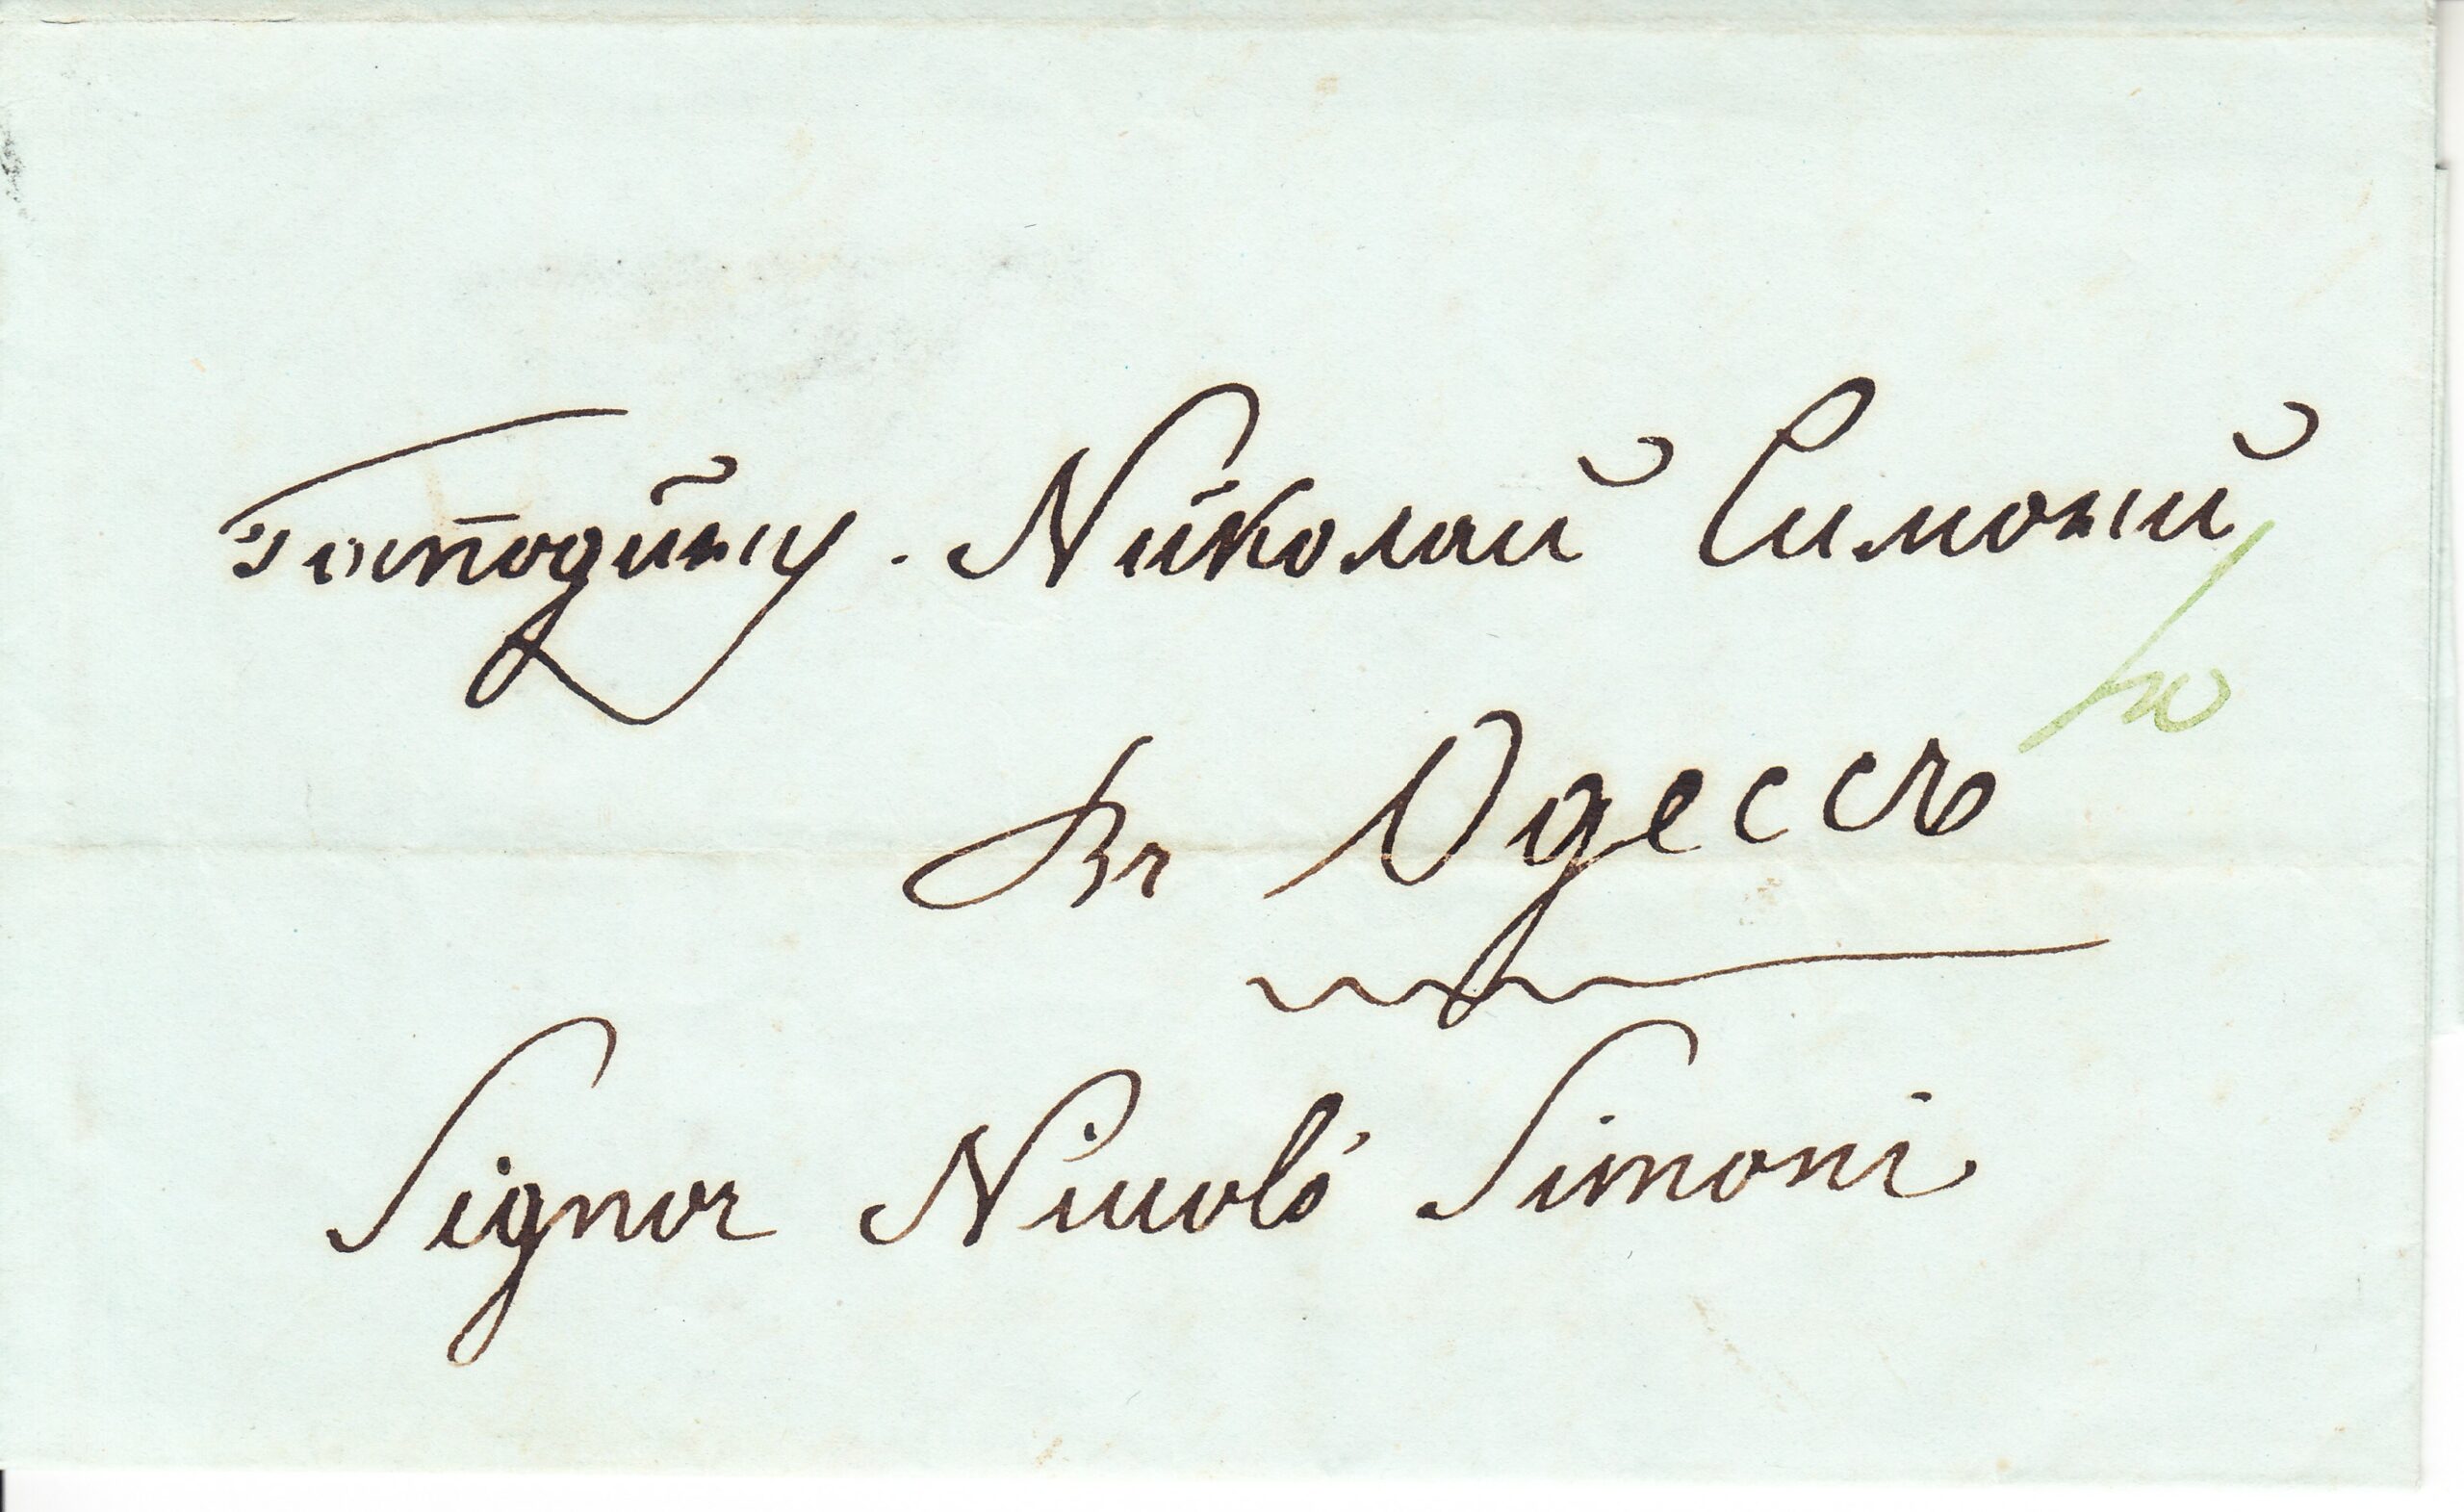 Господину. Николай Симоний
Въ Одессѣ
Signor Nicolò Simoni